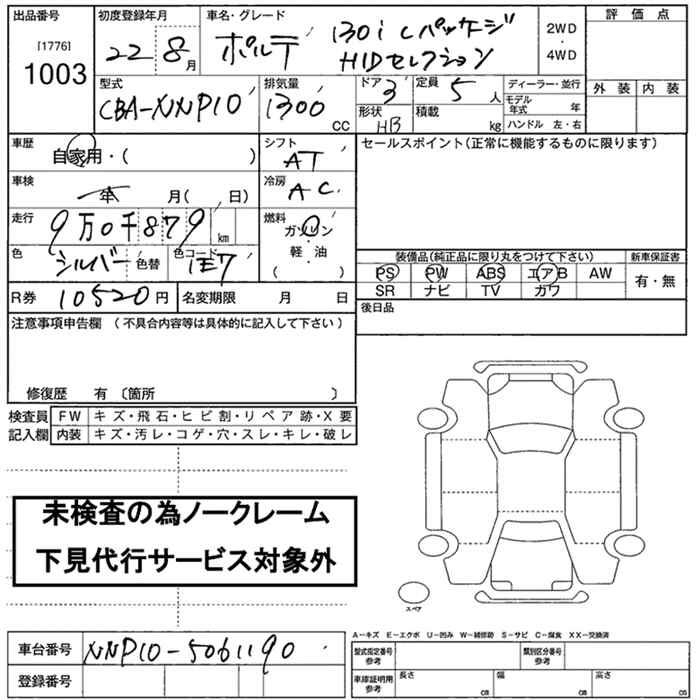 出品番号
[1776]
1003
初度登録年月
22 8月
車名・グレード
ポルテ 130i Cパッケージ
HIDセレクション
2WD
・
4WD
評価点
外装 内装
型式
CBA-NNP10
排気量
1300 CC
ドア 3
形状 HB
定員 5 人
積載 kg
ディーラー・並行
モデル年式 年
ハンドル 左・右
車歴
自家用・( )
シフト
AT
セールスポイント(正常に機能するものに限ります)
車検
年 月( 日)
冷房
AC
走行
9万0千879 km
燃料
ガソリン
軽・油
( )
色
シルバー
色替
色コード
1E7
装備品(純正品に限り丸をつけて下さい)
新車保証書
PS PW ABS エアB AW
有・無
SR ナビ TV ガワ
R券 10520円
名変期限 月 日
後日品
注意事項申告欄 (不具合内容等は具体的に記入して下さい)
修復歴 有 〔箇所 〕
検査員記入欄
FW キズ・飛石・ヒビ割・リペア跡・X要
内装 キズ・汚レ・コゲ・穴・スレ・キレ・破レ
未検査の為ノークレーム
下見代行サービス対象外
スペア
A-キズ E-エクボ U-凹み W-補修跡 S-サビ C-腐食 XX-交換済
車台番号 NNP10-5061190
登録番号
型式指定番号参考
類別区分番号参考
車庫証明用参考
長さ cm
幅 cm
高さ cm